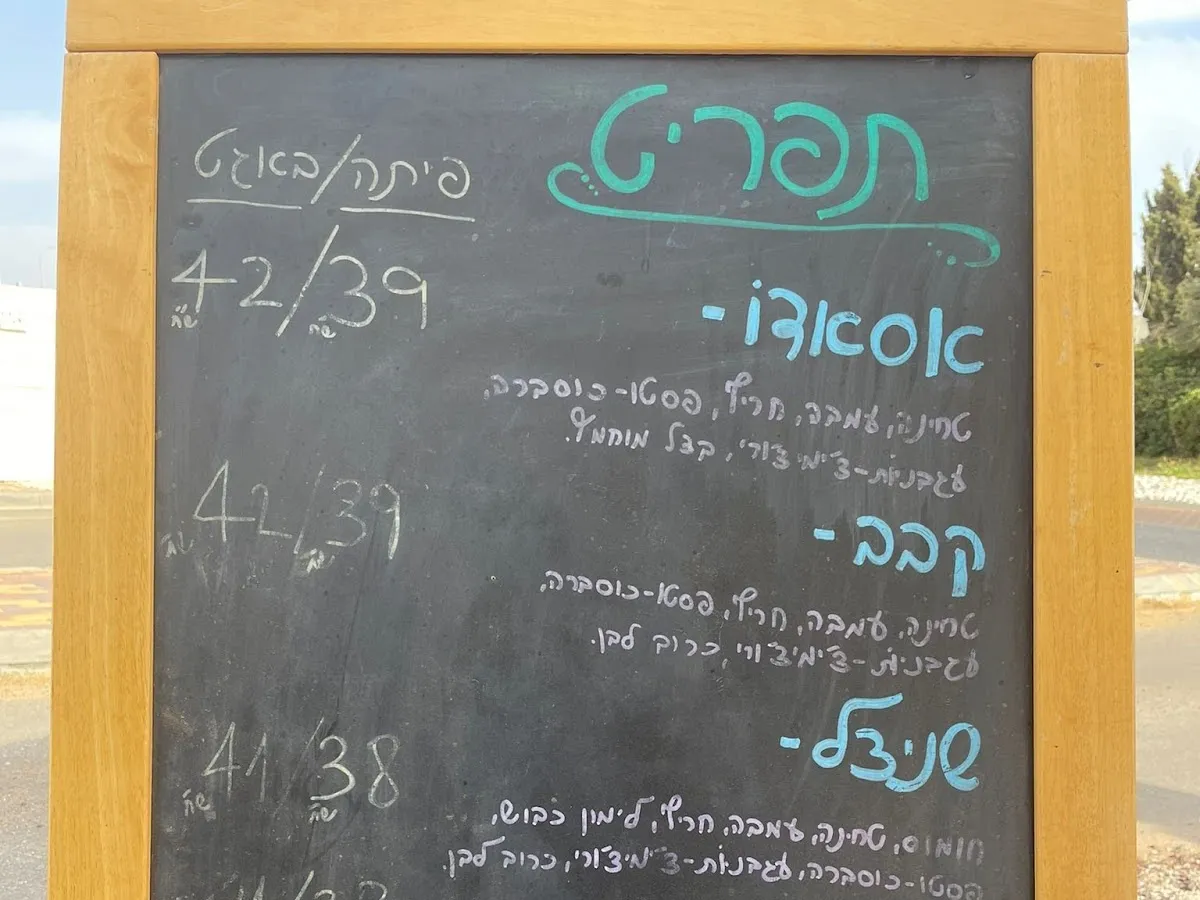 תפריט
פיתה/באגט
אסאדו -
42/39
שח שח
טחינה, עמבה, חריף, פסטו-כוסברה,
עגבניות-צ'ימיצ'ורי, בצל מוחמץ.
קבב -
42/39
שח שח
טחינה, עמבה, חריף, פסטו-כוסברה,
עגבניות-צ'ימיצ'ורי, כרוב לבן.
שניצל -
41/38
שח שח
חומוס, טחינה, עמבה, חריף, לימון כבוש,
פסטו-כוסברה, עגבניות-צ'ימיצ'ורי, כרוב לבן.